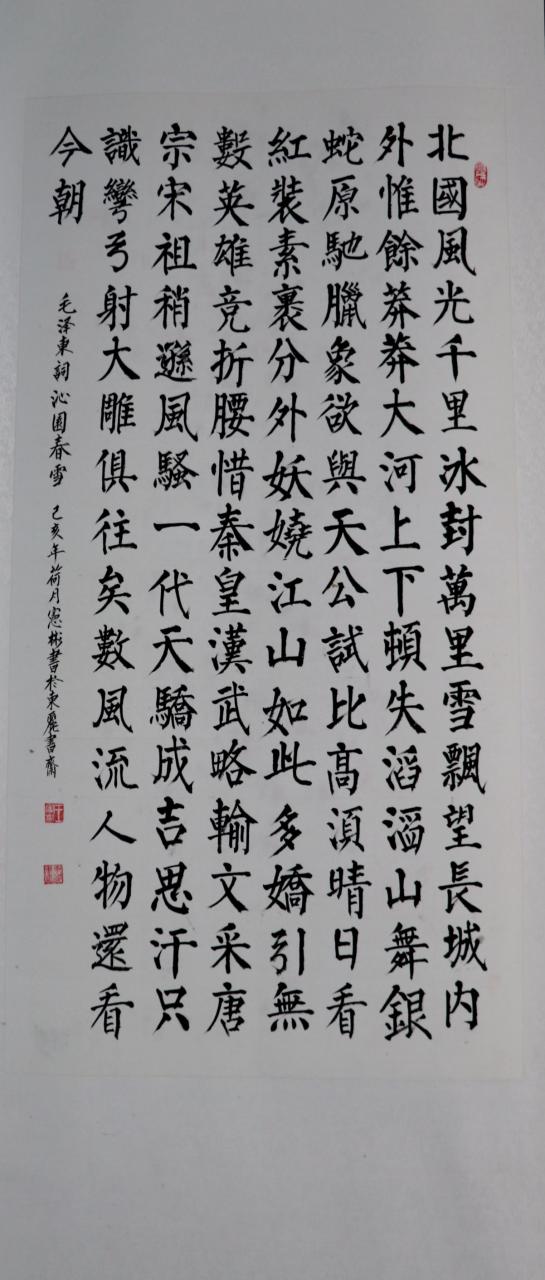 北國風光千里冰封萬里雪飄望長城内
外惟餘莽莽大河上下頓失滔滔山舞銀
蛇原馳臘象欲與天公試比高湏晴日看
紅裝素裹分外妖嬈江山如此多嬌引無
數英雄竞折腰惜秦皇漢武略輸文采唐
宗宋祖稍遜風騷一代天驕成吉思汗只
識彎弓射大雕俱往矣數風流人物還看
今朝
毛泽東詞沁園春雪 己亥年荷月憲彬書於東麗書齋